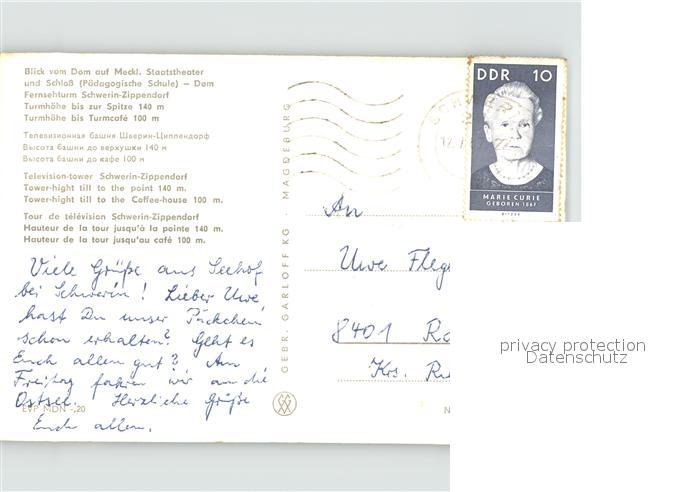 Blick vom Dom auf Meckl. Staatstheater
und Schloß (Pädagogische Schule) — Dom
Fernsehturm Schwerin-Zippendorf
Turmhöhe bis zur Spitze 140 m
Turmhöhe bis Turmcafé 100 m
Телевизионная башня Шверин-Циппендорф
Высота башни до верхушки 140 м
Высота башни до кафе 100 м
Television-tower Schwerin-Zippendorf
Tower-hight till to the point 140 m.
Tower-hight till to the Coffee-house 100 m.
Tour de télévision Schwerin-Zippendorf
Hauteur de la tour jusqu'à la pointe 140 m.
Hauteur de la tour jusqu'au café 100 m.
Viele Grüße aus Seehof
bei Schwerin! Lieber Uwe
hast Du unser Päckchen
schon erhalten? Geht es
Euch allen gut? Am
Freitag fahren wir an die
Ostsee. Herzliche Grüße
Euch allen.
EVP MDN -,20
GEBR. GARLOFF KG · MAGDEBURG
DDR 10
MARIE CURIE
GEBOREN 1867
An
Uwe
8401
Krs.
privacy protection
Datenschutz